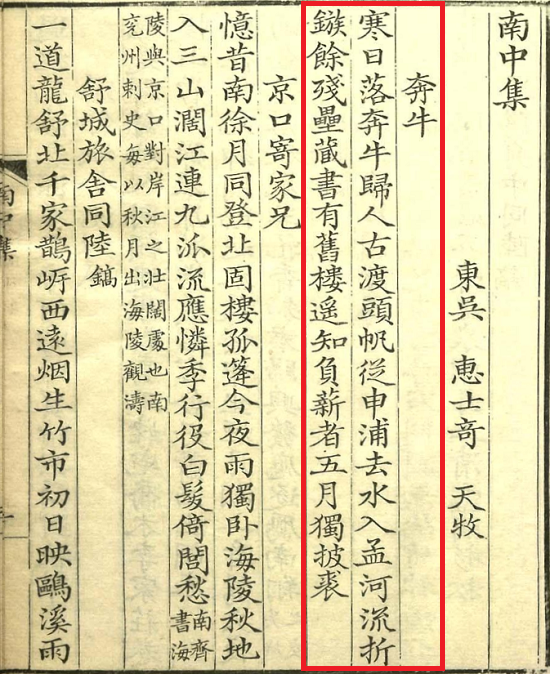 南中集
東吳 惠士竒 天牧
奔牛
寒日落奔牛歸人古渡頭帆從申浦去水入孟河流折
鏃餘殘壘藏書有舊樓遥知負薪者五月獨披裘
京口寄家兄
憶昔南徐月同登北固樓孤篷今夜雨獨卧海陵秋地
入三山濶江連九派流應憐季行役白髮倚閭愁南齊書海
陵與京口對岸江之壯闊處也南
兖州刺史每以秋月出海陵觀濤
舒城旅舍同陸鎬
一道龍舒北千家鵲岍西遠烟生竹市初日映鷗溪雨
南中集